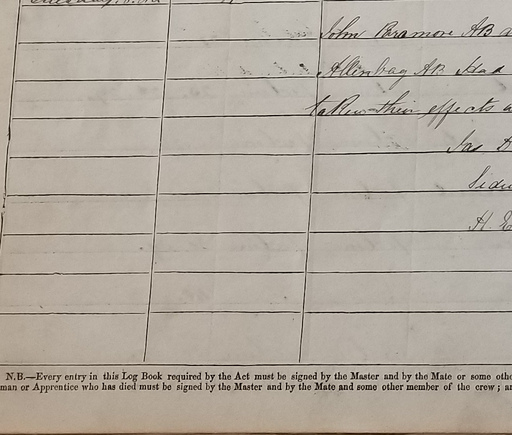 John Paramore AB
AB Had
taken their effects
Jas
H.
N.B.—Every entry in this Log Book required by the Act must be signed by the Master and by the Mate or some
man or Apprentice who has died must be signed by the Master and by the Mate and some other member of the crew;